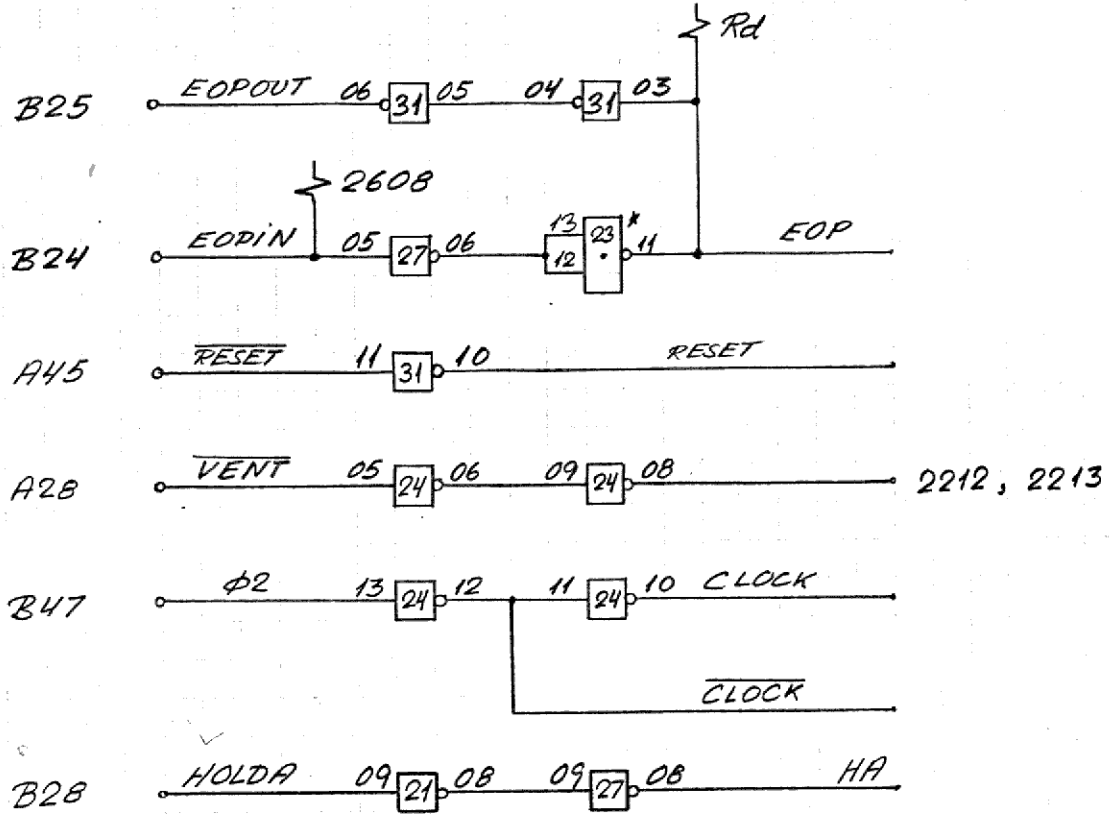 Rd
B25 EOPOUT 06 31 05 04 31 03
2608
B24 EOPIN 05 27 06 13 12 23 * 11 EOP
A45 RESET 11 31 10 RESET
A28 VENT 05 24 06 09 24 08 2212, 2213
B47 φ2 13 24 12 11 24 10 CLOCK
CLOCK
B28 HOLDA 09 21 08 09 27 08 HA